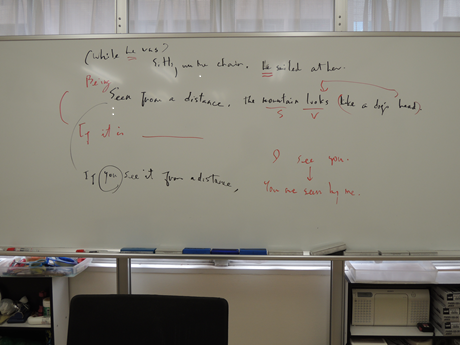 (while he was)
Sitting on the chair, He smiled at her.
Being
Seen from a distance, the mountain looks (like a dog's head).
S V
If it is
I see you.
If you see it from a distance,
You are seen by me.